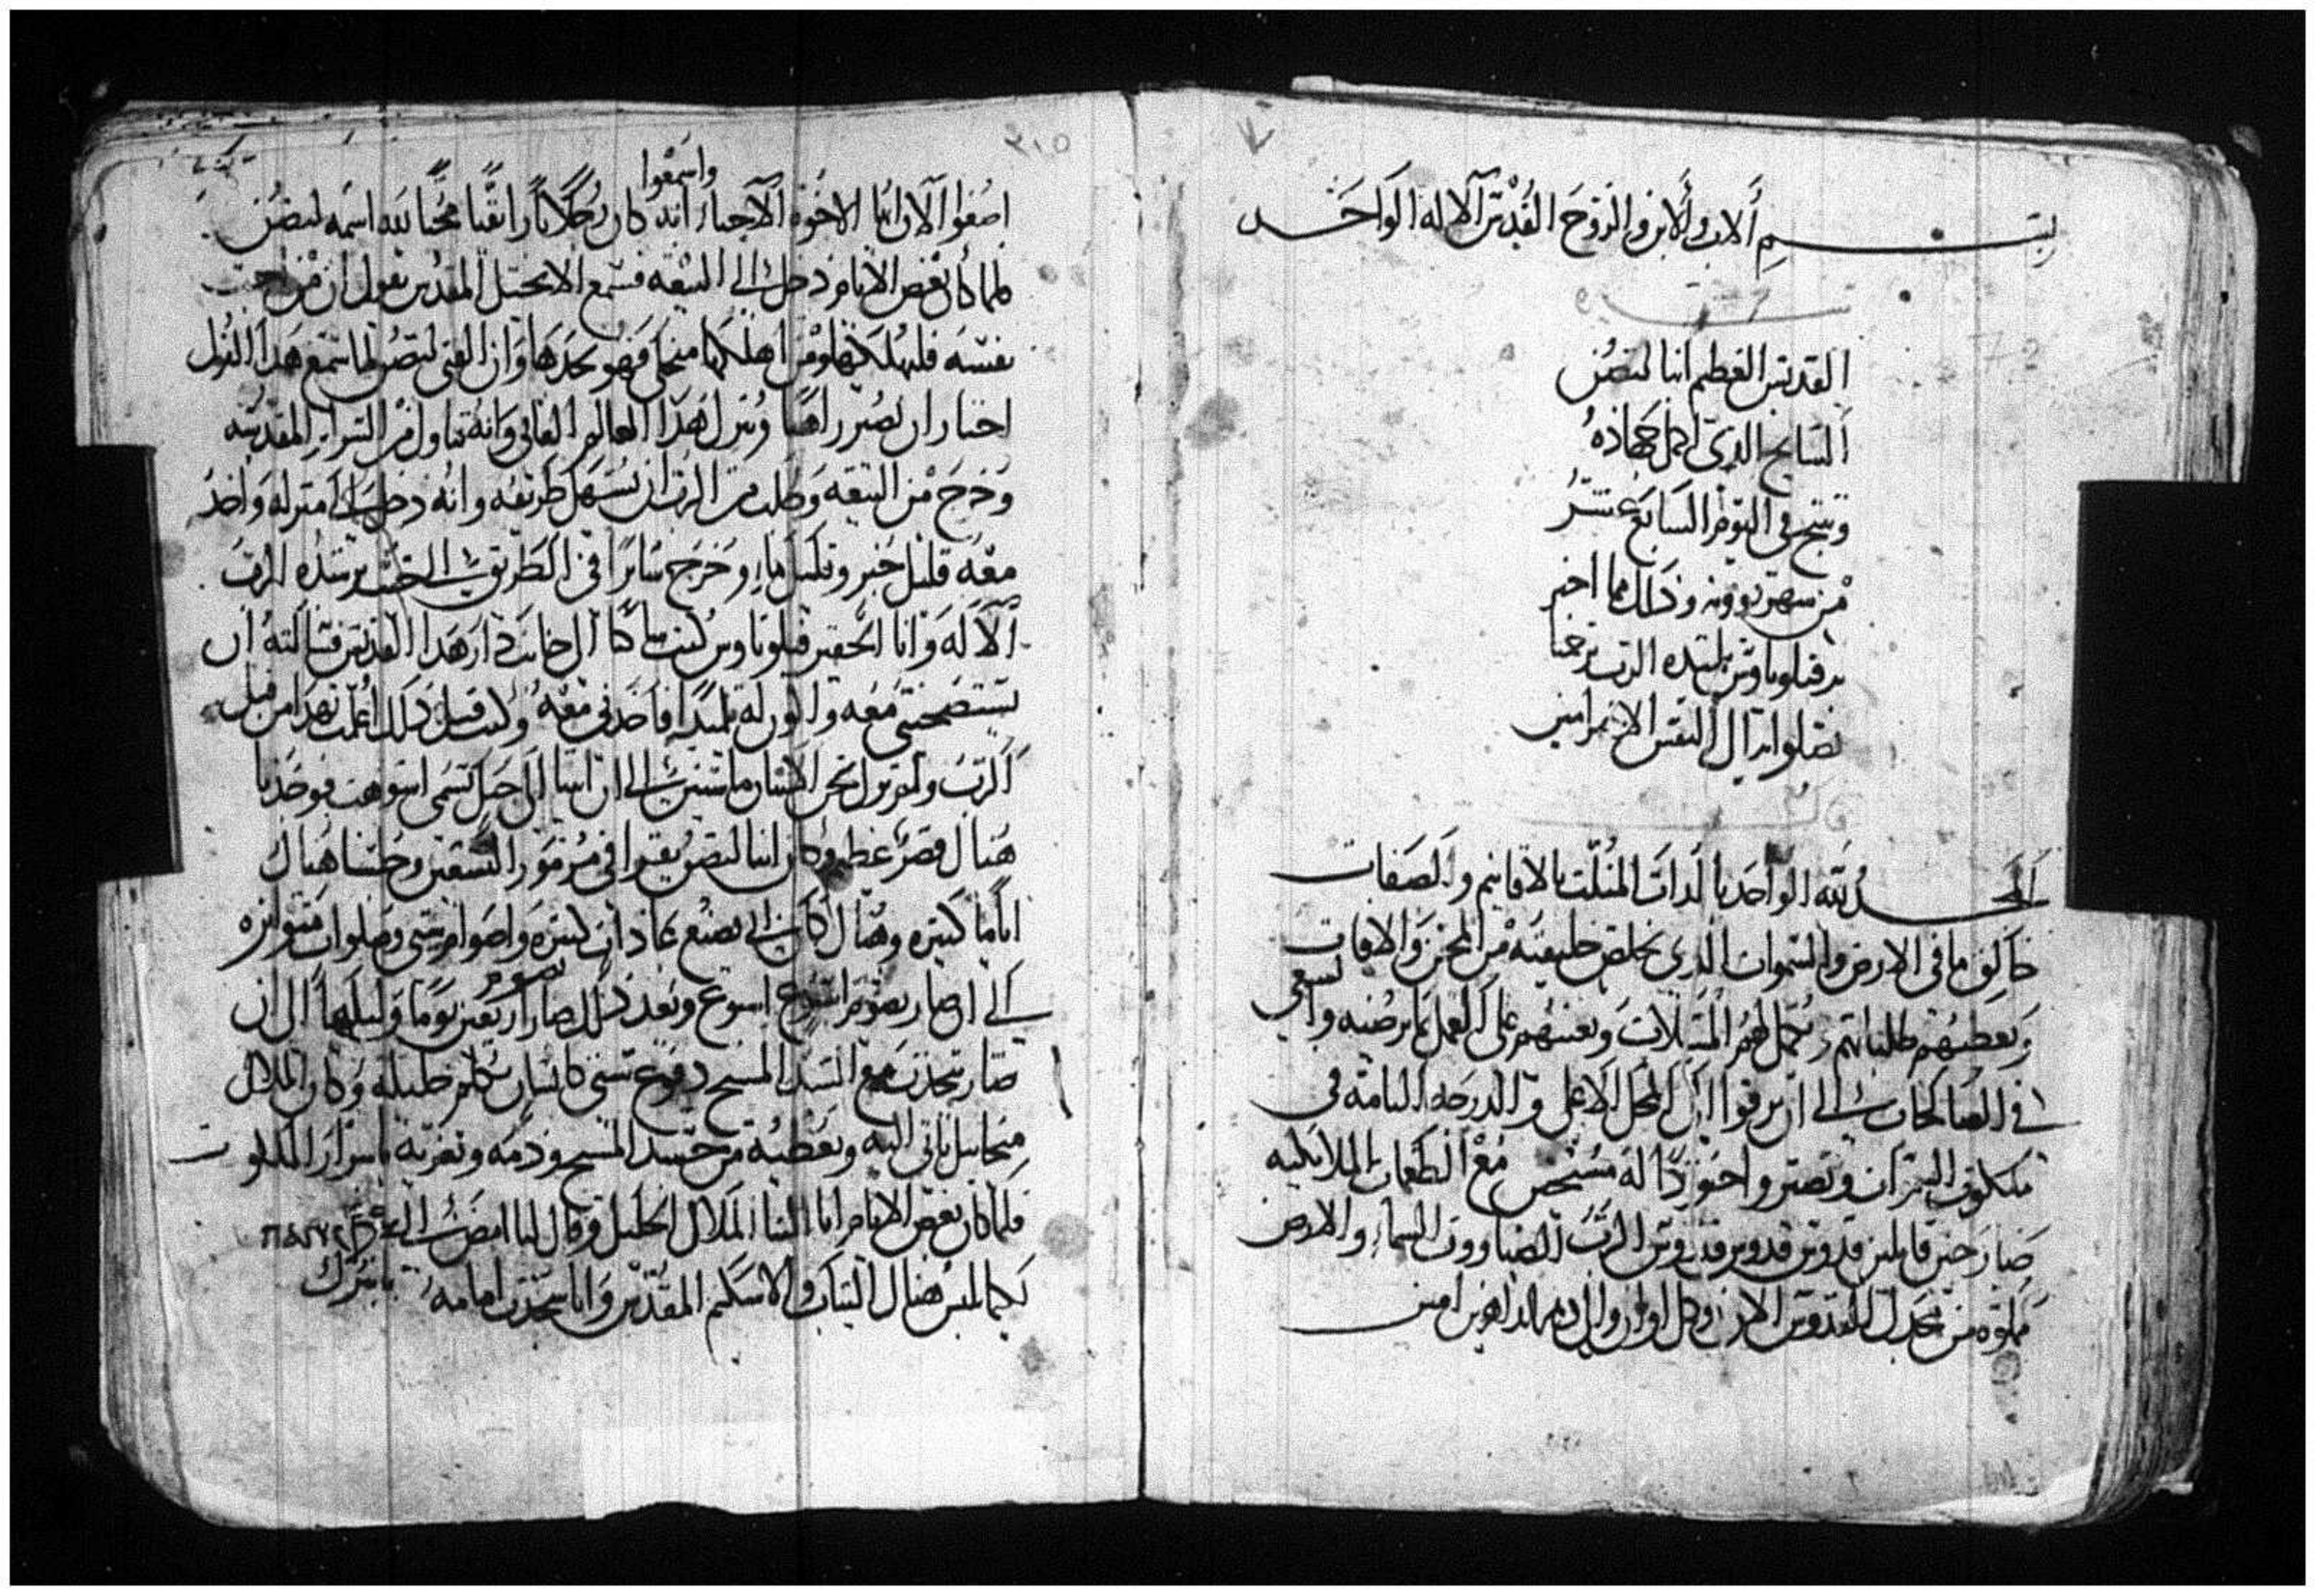 بسم الاب والابن والروح القدس الاله الواحد
سيرة
القديس العظيم انبا لتصن
السايح الذي اكمل جهاده
وتنيح في اليوم السابع عشر
من شهر بوونه وذلك مما اخبر
به فيلوباوس تلميده الرب يرحمنا
بصلواته الي النفس الاخير امين
الحمد لله الواحد بالدات المثلت بالاقانيم والصفات
خالق ما في الارض والسموات الدي يخلص خليقته من المحن والافات
ويعطيهم طلباتهم ويكمل لهم المسالات ويعينهم على العمل بما يرضيه والسعي
في الصالحات الى ان يرقوا الى المحل الاعلى والدرجه التامه في
ملكوت السموات وتصير واحنودا له مع الطغمات الملايكيه
صارخين قايلين قدوس قدوس قدوس الرب الصباووت السماء والارض
مملوه من مجدك القدوس الان وكل اوان والى دهر الداهرين امين
٢١٥
واسمعوا
اصغوا الان ايها الاخوه الاحباء انه كان رجلا بارا تقيا محبا لله اسمه لتصن
فلما كان بعض الايام دخل الى البيعه فسمع الانجيل المقدس يقول ان من احب
نفسه فليهلكها ومن اهلكها من اجلي فهو يجدها وان الفتى لتصن لما سمع هدا القول
اختار ان يصير راهبا ويترك هدا العالم الفاني وانه تناول من السراير المقدسه
وخرج من البيعه وطلب من الرب ان يسهل طريقه وانه دخل الى منزله واخد
معه قليل خبز وقليل ماء وخرج سايرا في الطريق الى حيث يرشده الرب
الاله وانا الحقير فيلوباوس كنت ساكنا الى جانب دار هدا القديس فسالته ان
يستصحبني معه واكون له تلميدا فاخدني معه وكنت قبل دلك اعلمت بهدا من قبل
الرب ولم نزل نحن الاثنان ماشين الى ان اتينا الى جبل يسمى فوجدنا
هناك قصر عظيم وكان انبا لتصن يقرا في مزمور التسعين وجلسنا هناك
اياما كتيره وهناك كان ابي يصنع عبادات كتيره واصوام شتى وصلوات متواتره
الى ان صار يصوم اسبوع اسبوع وبعد دلك صار يصوم اربعين يوما وليلها الى ان
صار يتحدت مع السيد المسيح دفوع شتى كانسان يكلم خليله وكان الملاك
ميخاييل ياتي اليه ويعطيه من جسد المسيح ودمه ويعزيه باسرار الملكوت
فلما كان بعض الايام اتى الينا الملاك الجليل وقال لنا امضى الى
لكيما تلبس هناك التياب والاسكيم المقدس وانا سجدت امامه